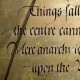 Things fall
the centre cannot
ere anarchy is
upon the